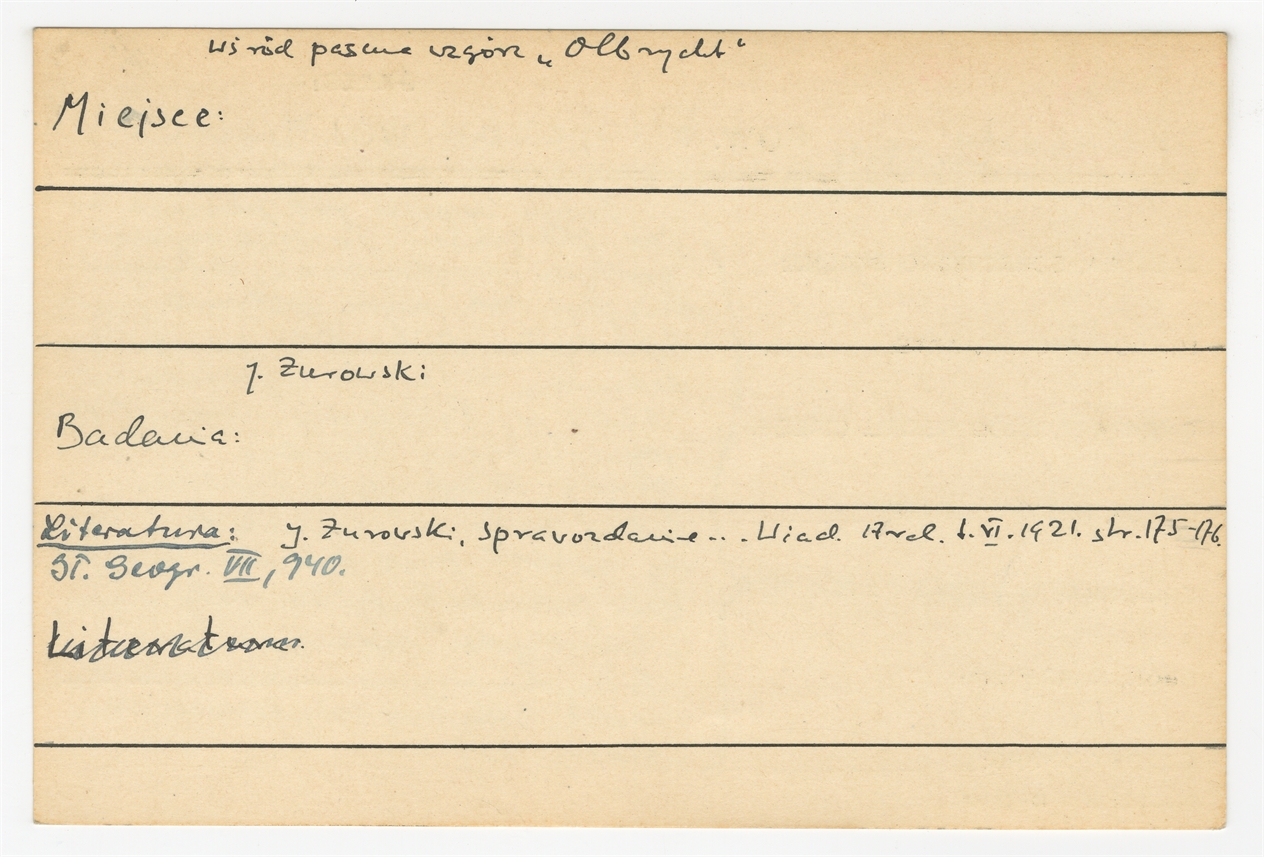 wśród pasma wzgórz „Olbrycht“
Miejsce:
J. Żurowski
Badania:
Literatura: J. Żurowski, Sprawozdanie... Wiad. Arch. t. VI. 1921. str. 175-176.
Sł. Geogr. VII, 940.
Literatura